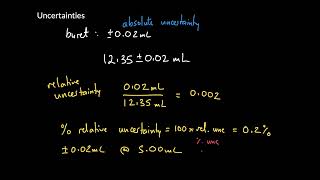 Uncertainties
absolute uncertainty
buret: ±0.02mL
12.35 ± 0.02 mL
relative uncertainty 0.02mL / 12.35mL = 0.002
% relative uncertainty = 100 x rel. unc = 0.2%
% unc
±0.02mL @ 5.00mL